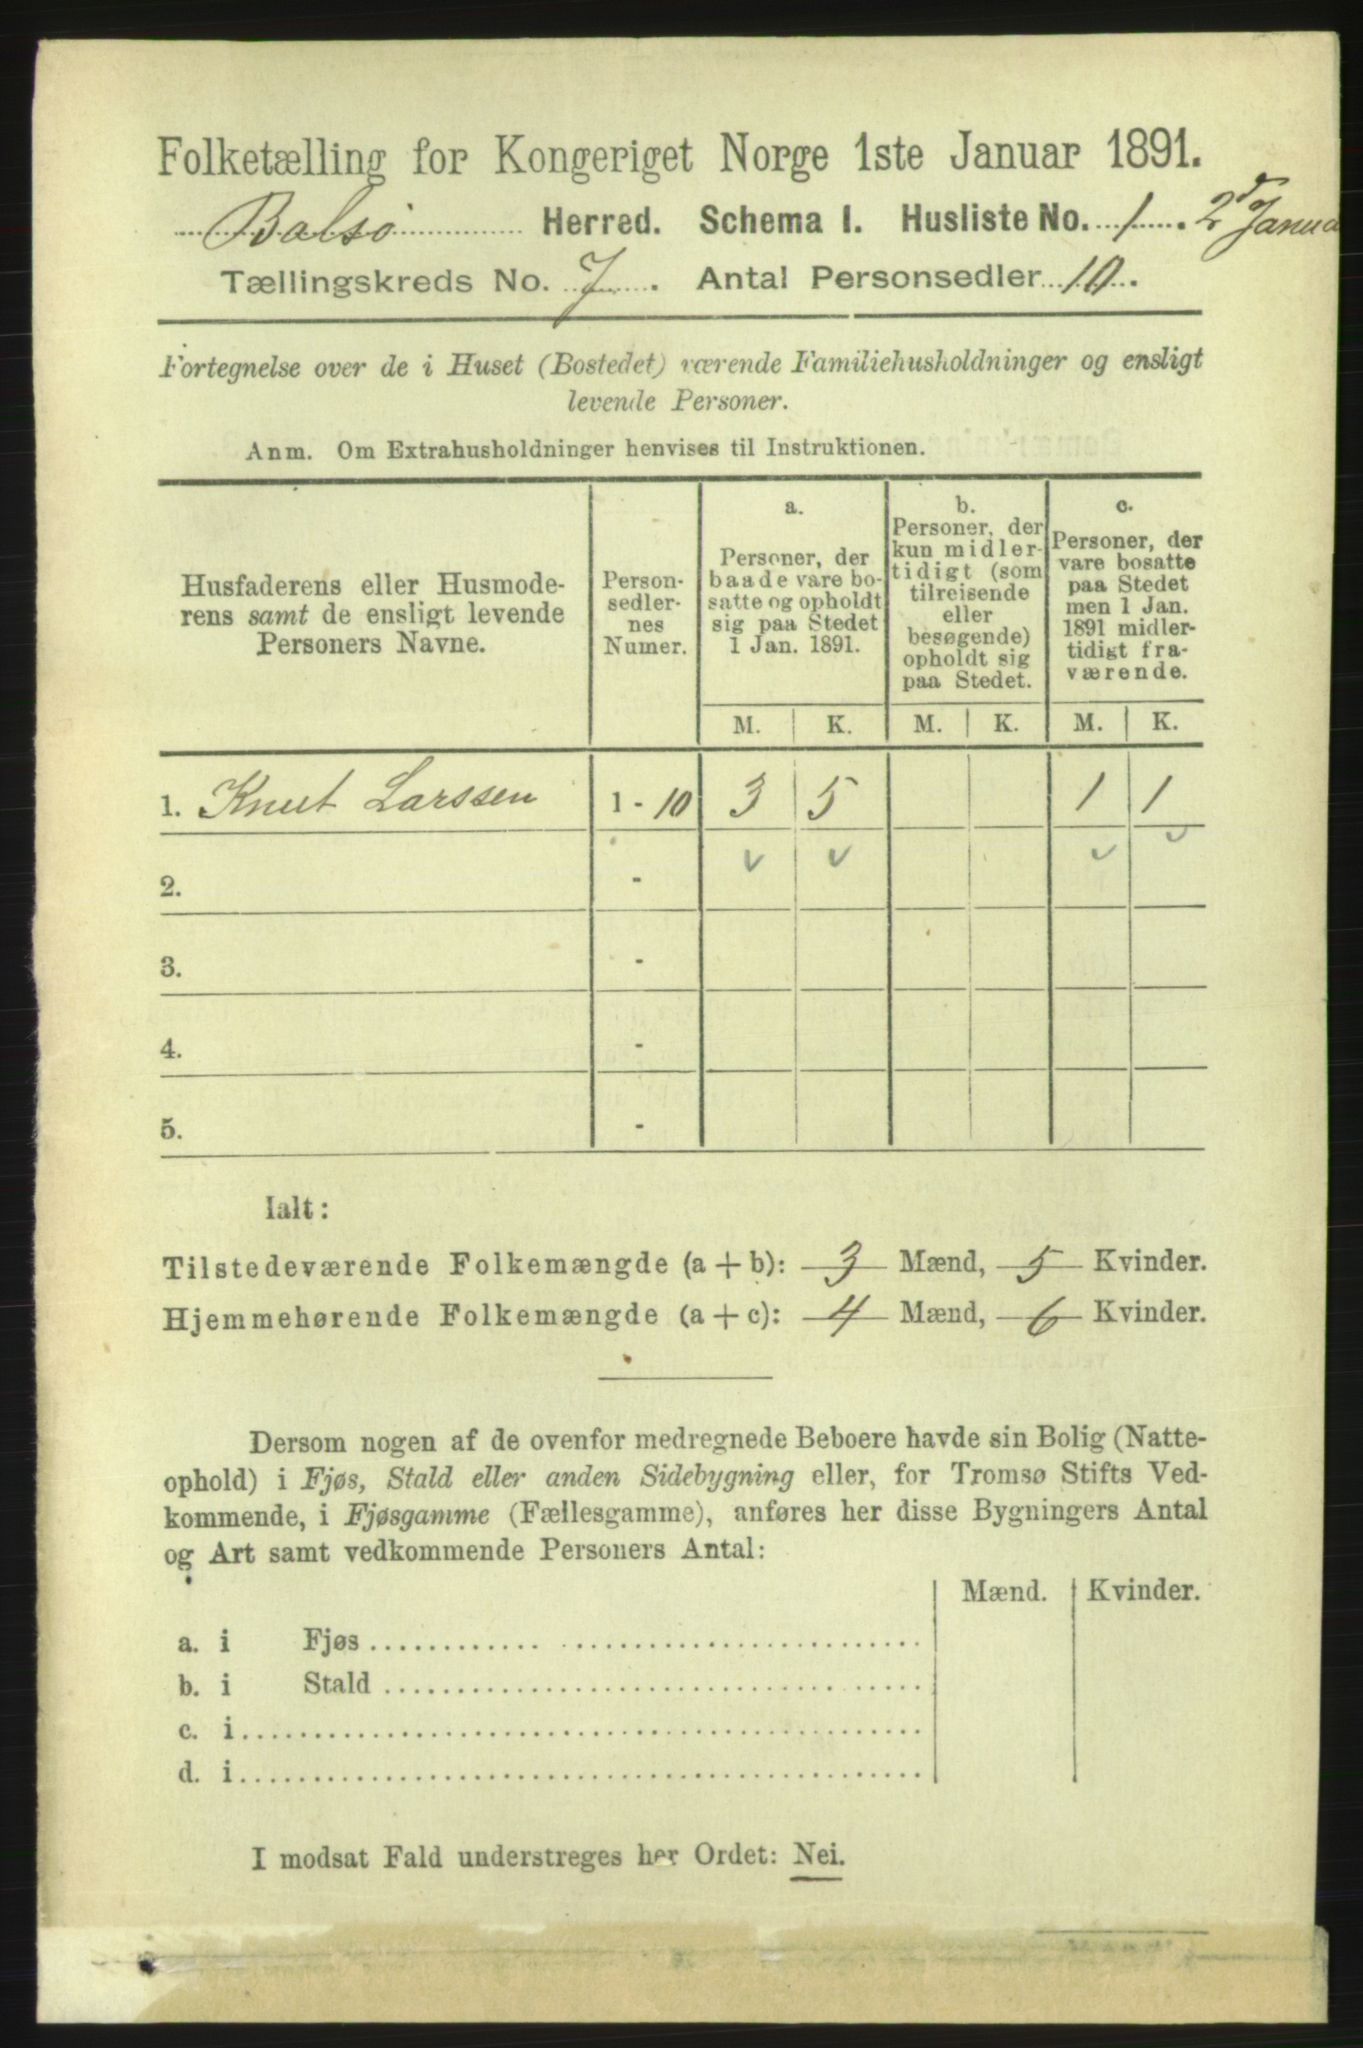 Folketælling for Kongeriget Norge 1ste Januar 1891.
Balsø Herred. Schema I. Husliste No. 1. 2d Janua
Tællingskreds No. 7. Antal Personsedler 10.
Fortegnelse over de i Huset (Bostedet) værende Familiehusholdninger og ensligt
levende Personer.
Anm. Om Extrahusholdninger henvises til Instruktionen.
Husfaderens eller Husmode-
rens samt de ensligt levende
Personers Navne.
Person-
sedler-
nes
Numer.
a.
Personer, der
baade vare bo-
satte og opholdt
sig paa Stedet
1 Jan. 1891.
b.
Personer, der
kun midler-
tidigt (som
tilreisende
eller
besøgende)
opholdt sig
paa Stedet.
c.
Personer, der
vare bosatte
paa Stedet
men 1 Jan.
1891 midler-
tidigt fra-
værende.
M. K. M. K. M. K.
1. Knut Larssen 1 - 10 3 5 1 1
2. -
3. -
4. -
5. -
Ialt:
Tilstedeværende Folkemængde (a + b): 3 Mænd, 5 Kvinder.
Hjemmehørende Folkemængde (a + c): 4 Mænd, 6 Kvinder.
Dersom nogen af de ovenfor medregnede Beboere havde sin Bolig (Natte-
ophold) i Fjøs, Stald eller anden Sidebygning eller, for Tromsø Stifts Ved-
kommende, i Fjøsgamme (Fællesgamme), anføres her disse Bygningers Antal
og Art samt vedkommende Personers Antal:
Mænd. Kvinder.
a. i Fjøs
b. i Stald
c. i
d. i
I modsat Fald understreges her Ordet: Nei.